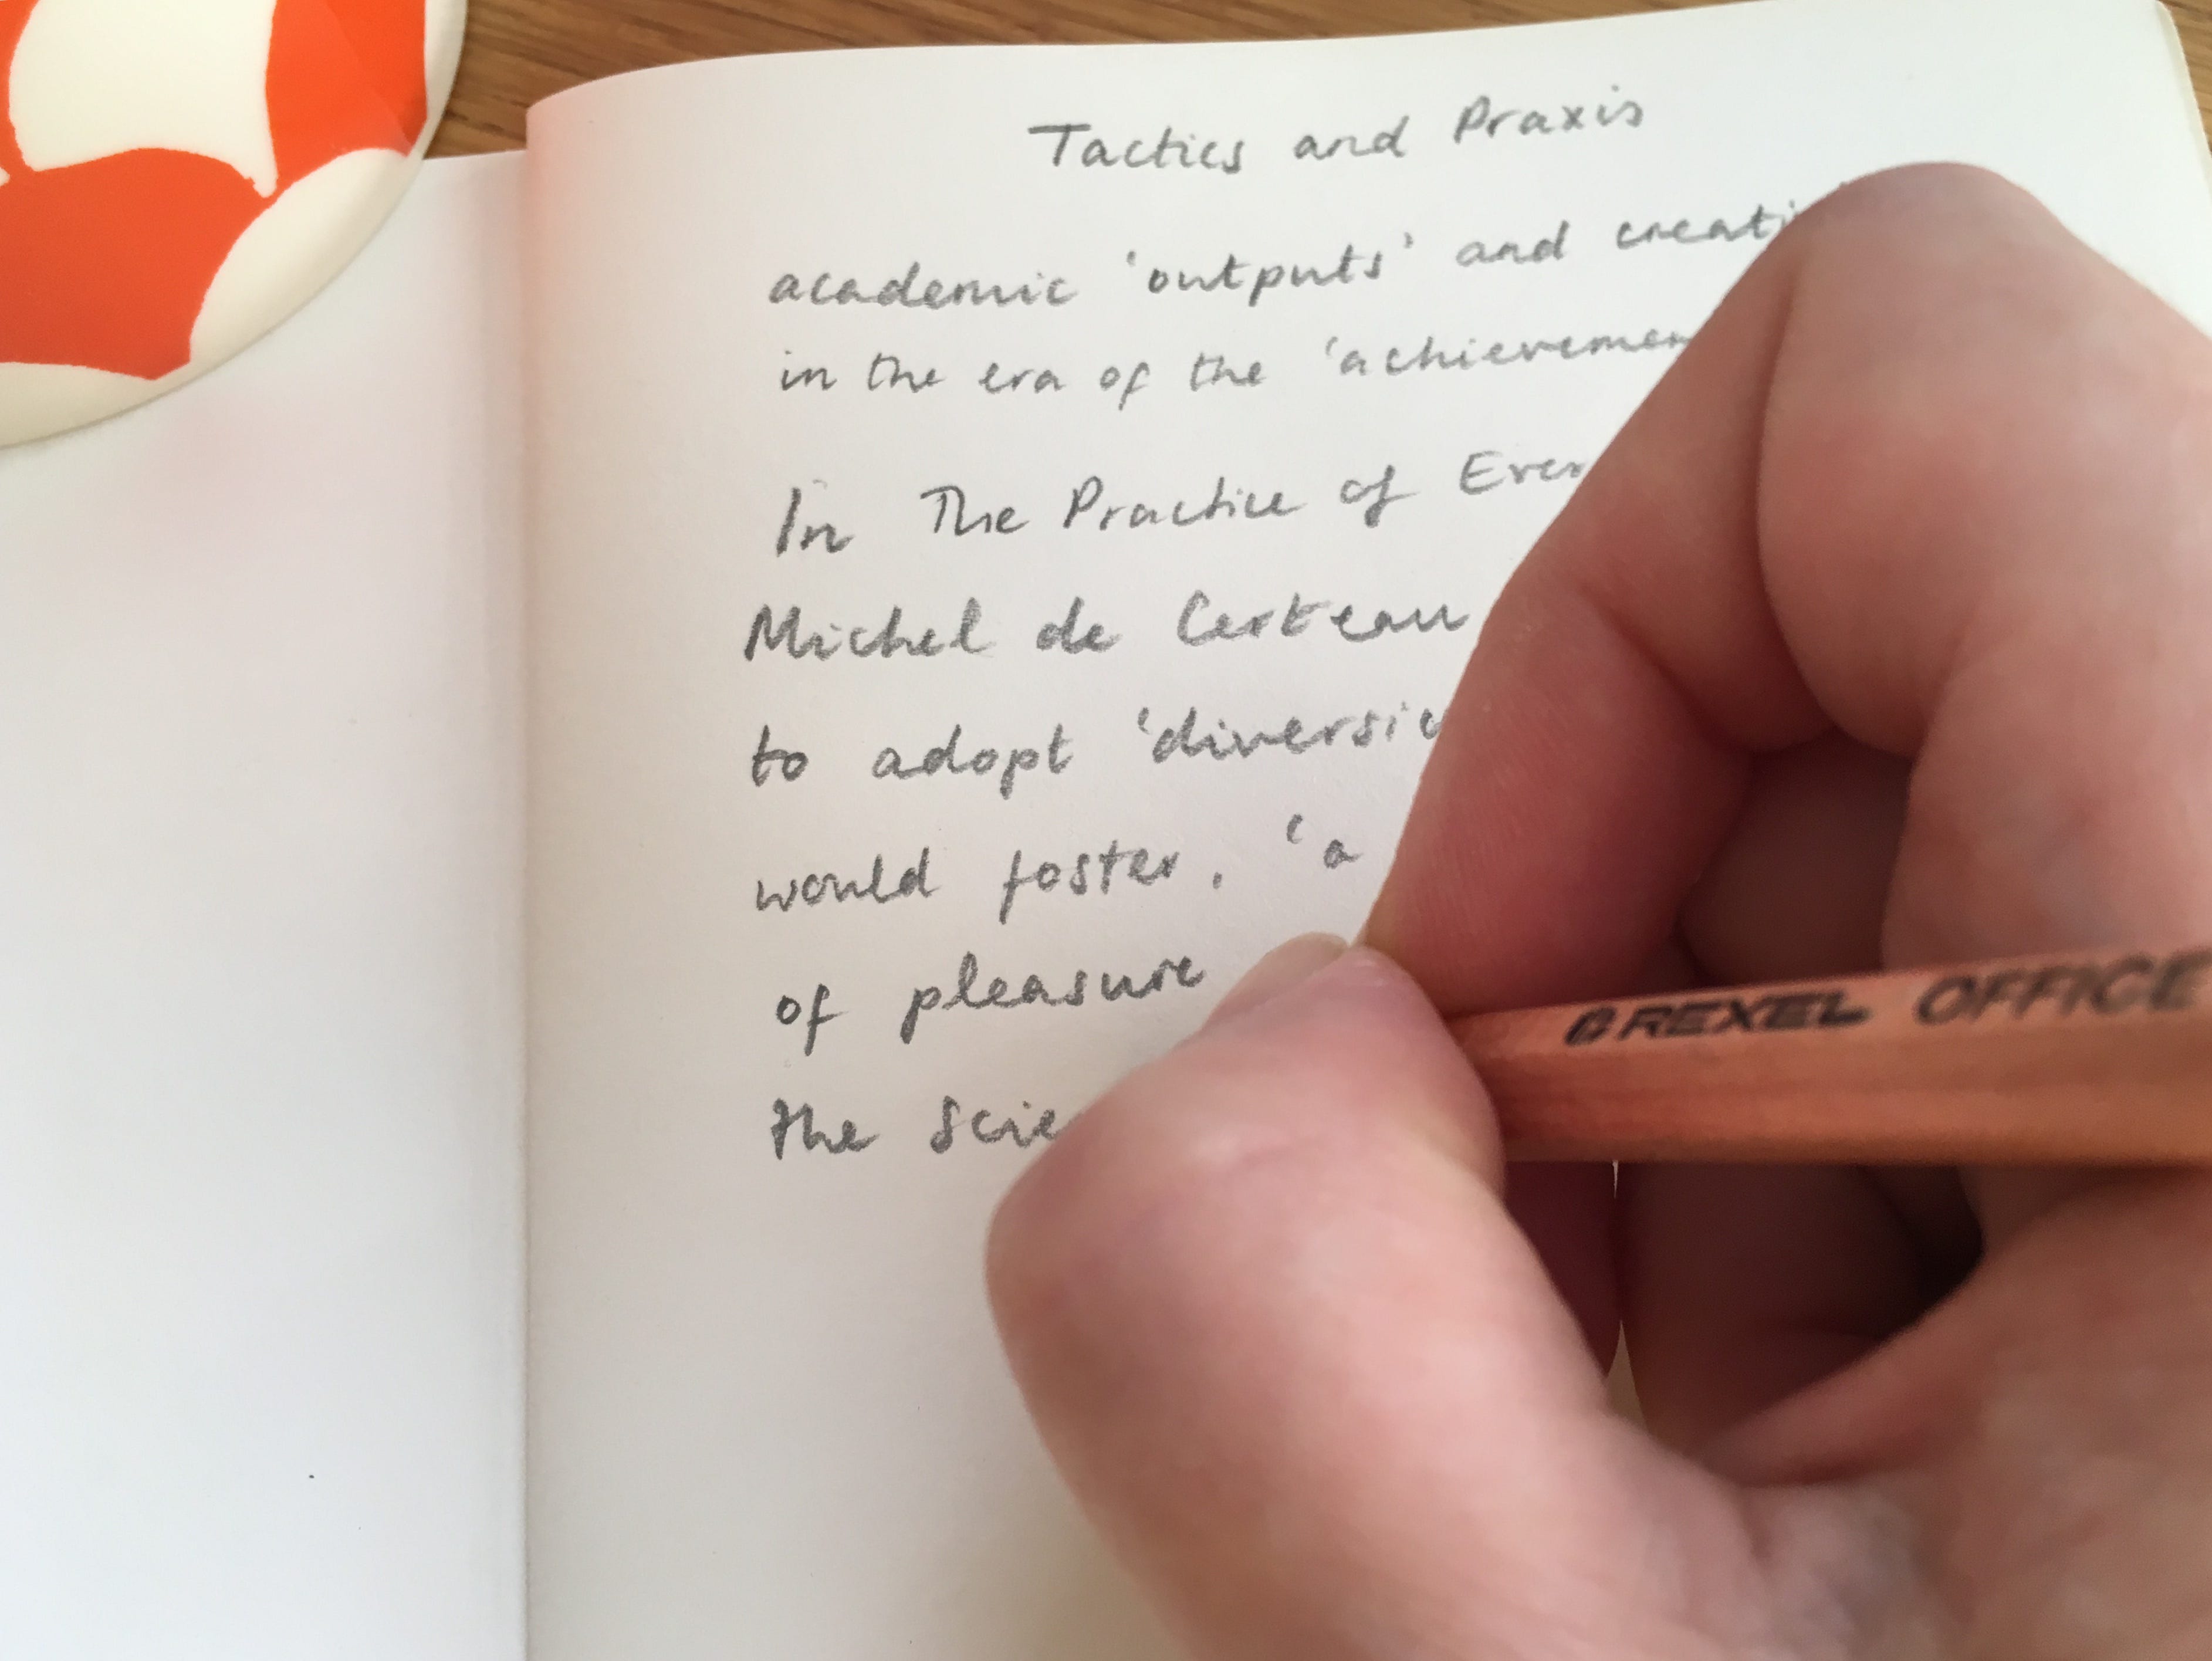 Tactics and Praxis
academic 'outputs' and creati
in the era of the 'achievemen
In The Practice of Ever
Michel de Certeau
to adopt 'diversiv
would foster, 'a
of pleasure
the scie
REXEL OFFICE